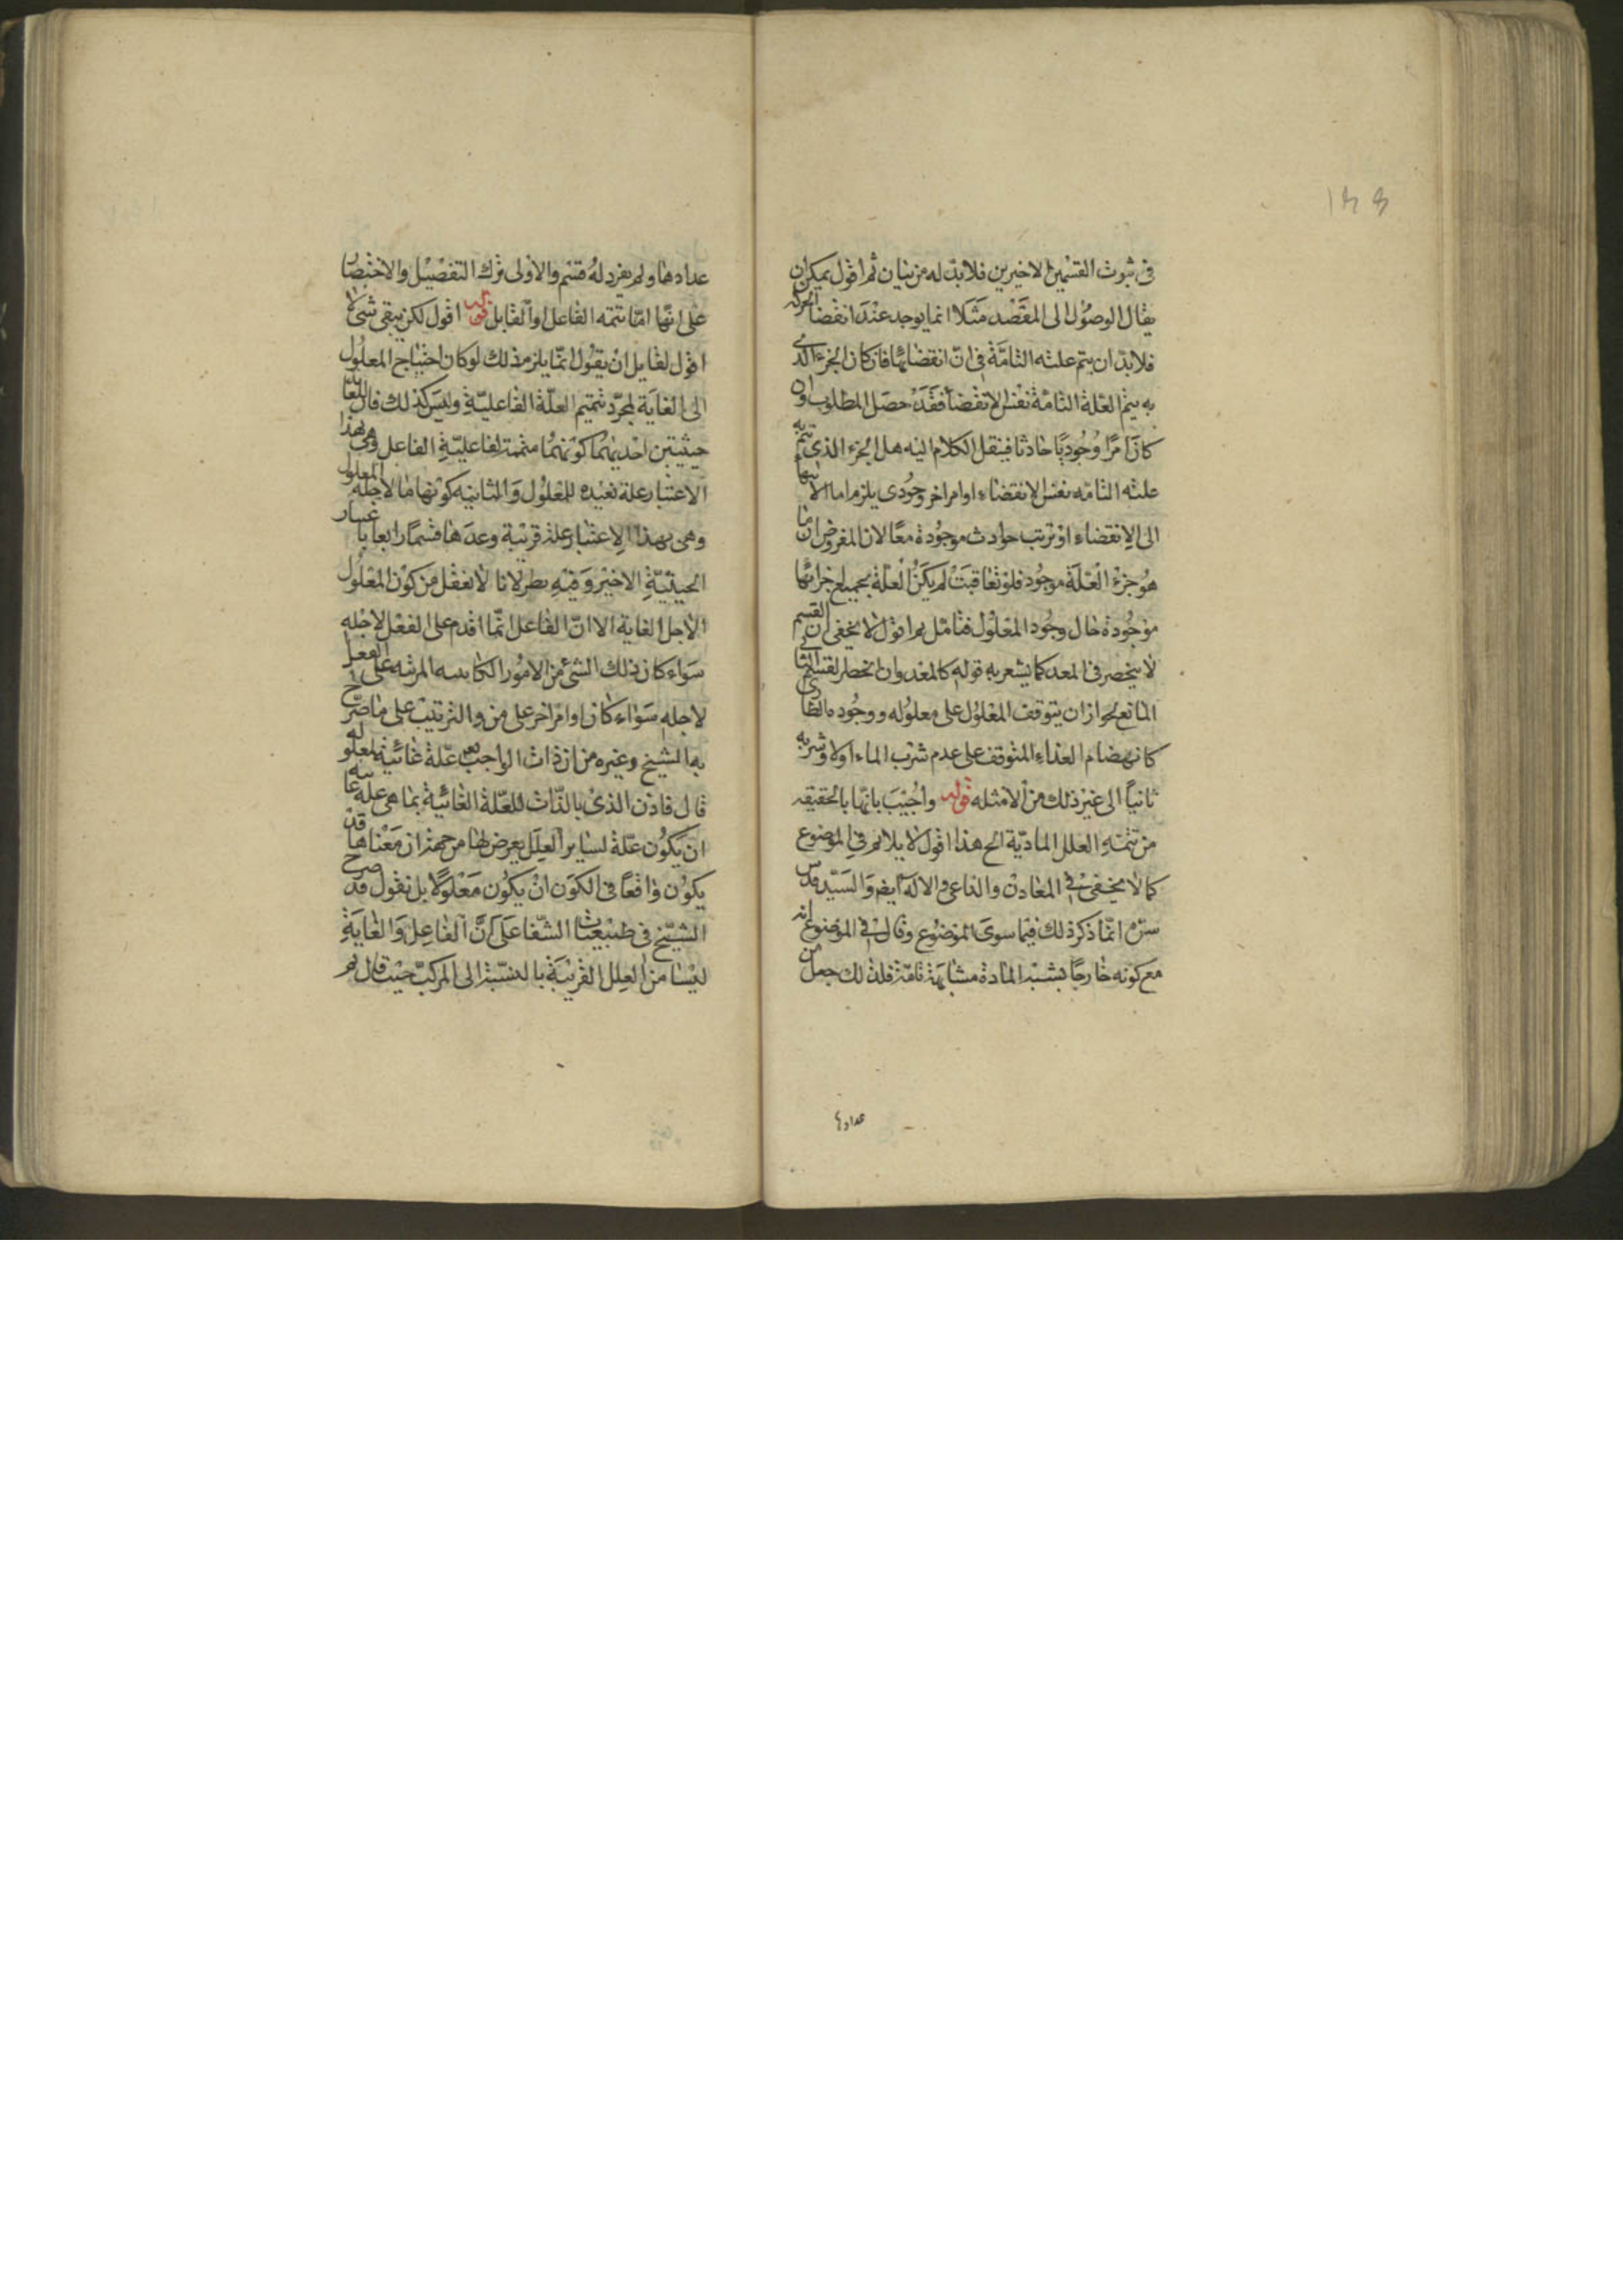 في ثبوت القسمين الاخيرين فلابد له من بيان ثم اقول يمكن ان
يقال الوصول الى المقصد مثلا انما يوجد عند انقضا الحركه
فلابد ان يتم علته التامة في ان انقضائها فان كان الجزء الذى
به يتم العلة التامة نفس الانقضا فقد حصل المطلوب وان
كان امرا وجوديا حادثا فينقل الكلام اليه هل الجزء الذى يتم به
علته التامه نفس الانقضاء او امر اخر وجودى يلزم اما الانتهاء
الى الانقضاء او ترتب حوادث موجودة معا لان المفروض ان ما
هو جزء العلة موجود فلو تعاقبت لم يكن العلة بجميع اجزائها
موجودة حال وجود المعلول فتامل اقول لا يخفى ان القسم
لا ينحصر فى المعد كما يشعر به قوله كالمعد وان انحصار القسم الثانى
المانع لجواز ان يتوقف المعلول على معلوله ووجوده
كانهضام الغذاء المتوقف على عدم شرب الماء اولا وشربه
ثانيا الى غير ذلك من الامثله قوله واجيب بانها بالحقيقه
من تتمة العلل المادية الخ هذا اقول لا يلائم في الموضوع
كما لا يخفى في المعادن والداعى والاله ايضا والسيد قدس
سره انما ذكر ذلك فيما سوى الموضوع وقال في الموضوع انه
مع كونه خارجا يشبه المادة مشابهة تامة فلذلك جعل من
عدادها
عدادها ولم يفرد له قسم والاولى ترك التفصيل والاختصار
على انها اما تتمه الفاعل او القابل قوله اقول لكن يبقى شئ
اقول لقايل ان يقول انما يلزم ذلك لو كان احتياج المعلول
الى الغاية لمجرد تتميم العلة الفاعلية وليس كذلك فان للغاية
حيثيتين احديهما كونها متممة لفاعلية الفاعل وهى بهذا
الاعتبار علة بعيده للمعلول والثانيه كونها ما لاجله المعلول
وهى بهذا الاعتبار علة قريبة وعدها قسما رابعا باعتبار
الحيثية الاخير وفيه نظر لانا لا نعقل من كون المعلول
لاجل الغاية الا ان الفاعل انما اقدم على الفعل لاجله
سواء كان ذلك الشئ من الامور الكاينه المرتبه على الفعل
لاجله سواء كان او امر اخر على من والترتيب على ما صرح
به الشيخ وغيره من ان ذات الواجب تعم علة غائية لمعلوله
قال فاذن الذى بالذات للعلة الغائية بما هى علة غائيه
ان يكون علة لساير العلل يعرض لها من جهة ان معناها قد
يكون واقعا فى الكون ان يكون معلولا بل نقول قد صرح
الشيخ فى طبيعيات الشفا على ان الفاعل والغاية
ليسا من العلل القريبة بالنسبة الى المركب حيث قال